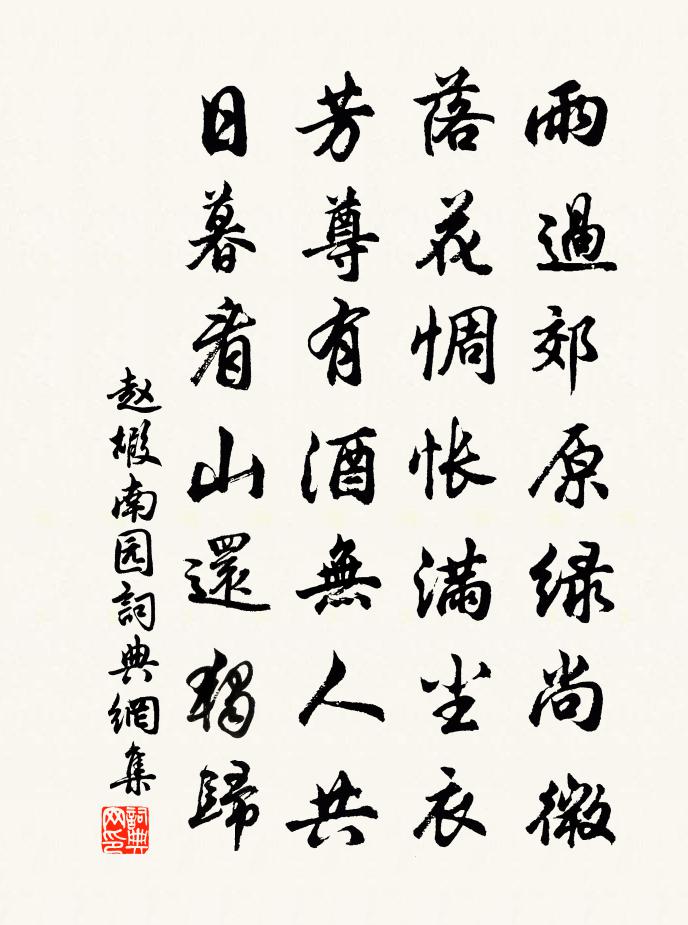 雨過郊原緑尚微
落花惆怅滿尘衣
芳尊有酒無人共
日暮看山還獨歸
赵嘏南园詞典網集
詞典网印